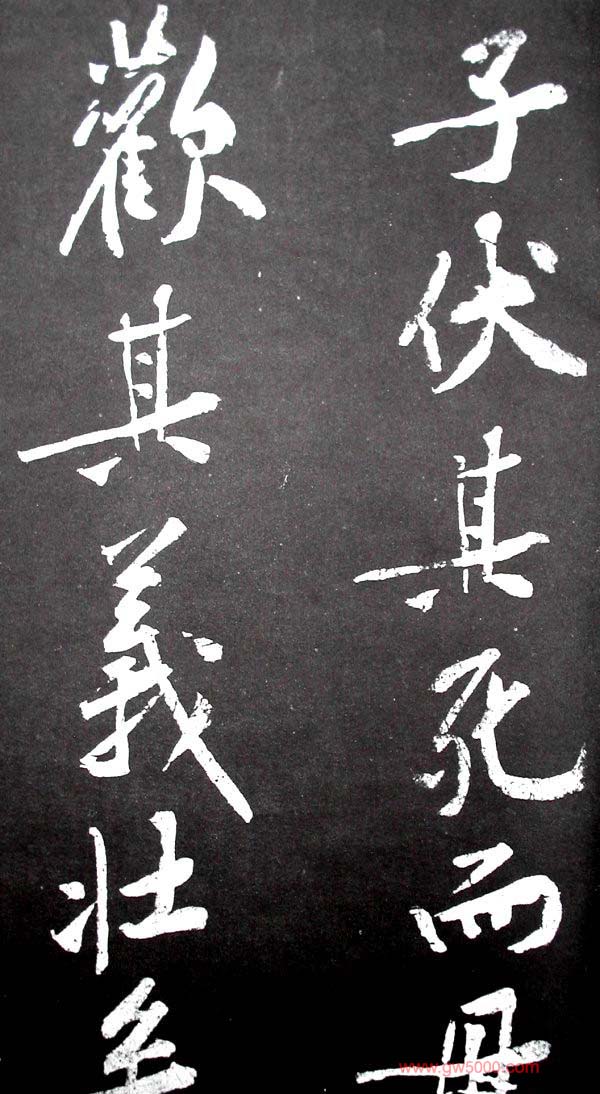 子伏其死而母
歡其義壯矣
www.gw5000.com